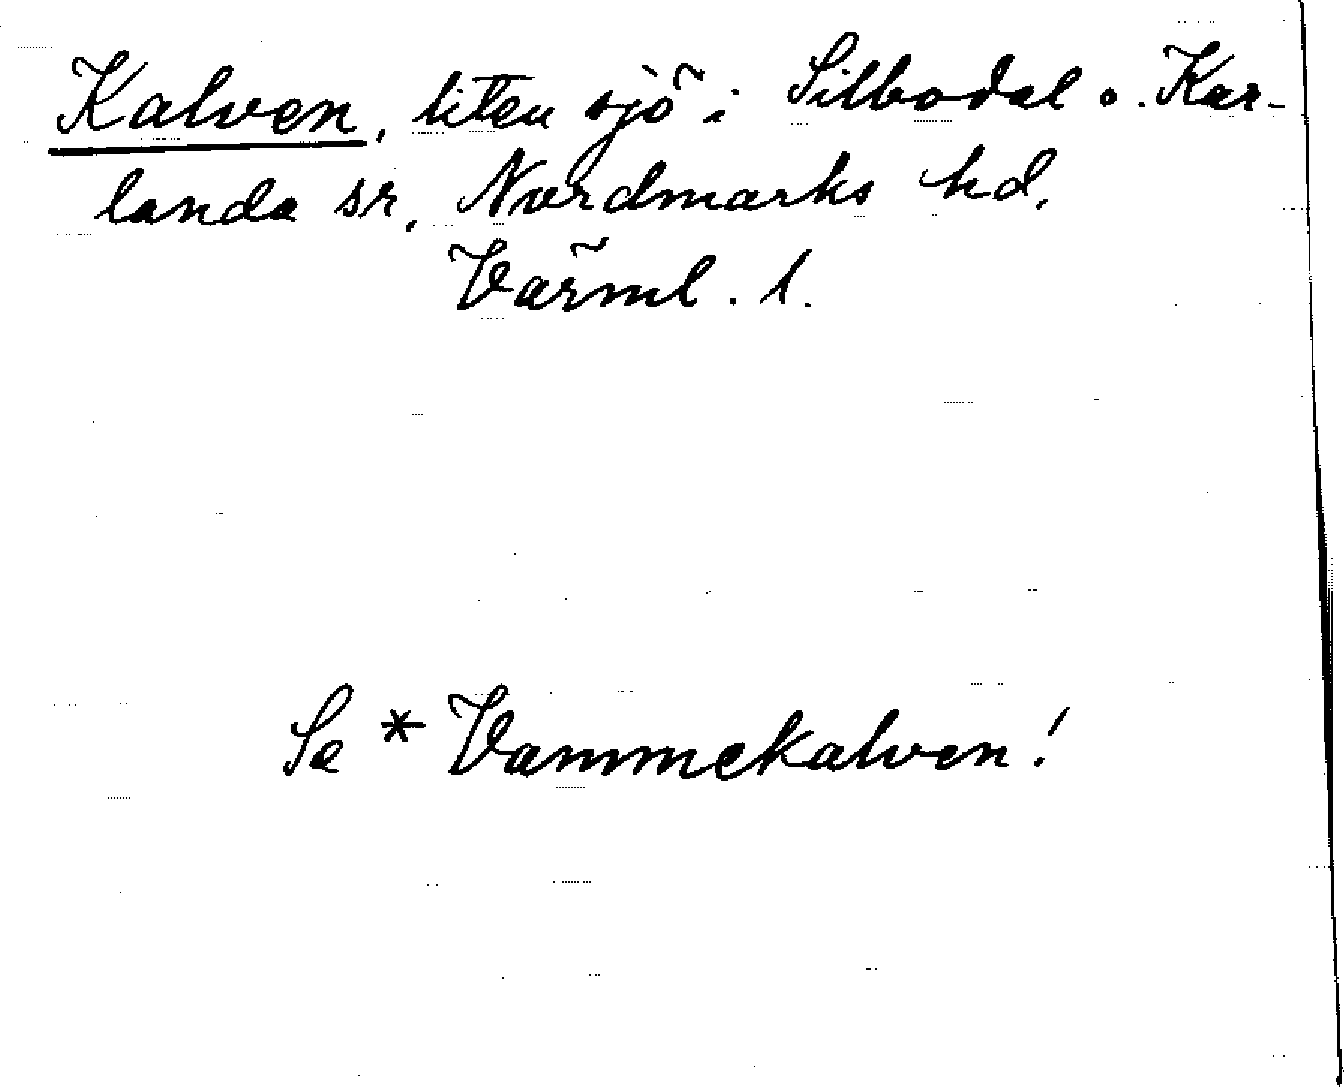 Kalven, liten sjö i Silbodal o. Kar-
landa sr, Nordmarks hd,
Värml. l.
Se * Vammekalven!